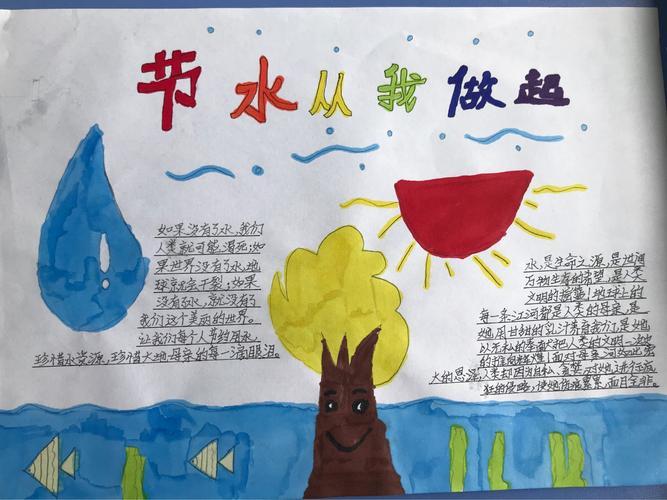 节水从我做起
如果没有了水，我们
人类就可能渴死；如
果世界没有了水，地
球就会干裂；如果
没有了水，就没有了
我们这个美丽的世界。
让我们每个人节约用水，
珍惜水资源，珍惜大地母亲的每一滴眼泪。
水，是生命之源，是世间
万物生存的希望，是人类
文明的摇篮！地球上的
每一条江河都是人类的母亲，是
她用甘甜的乳汁哺育我们，是她
以无私的
面对母亲河
大的恩泽，人类却因为自私、贪婪，对她进行
狂的侵略，使她伤痕累累，面目全非。